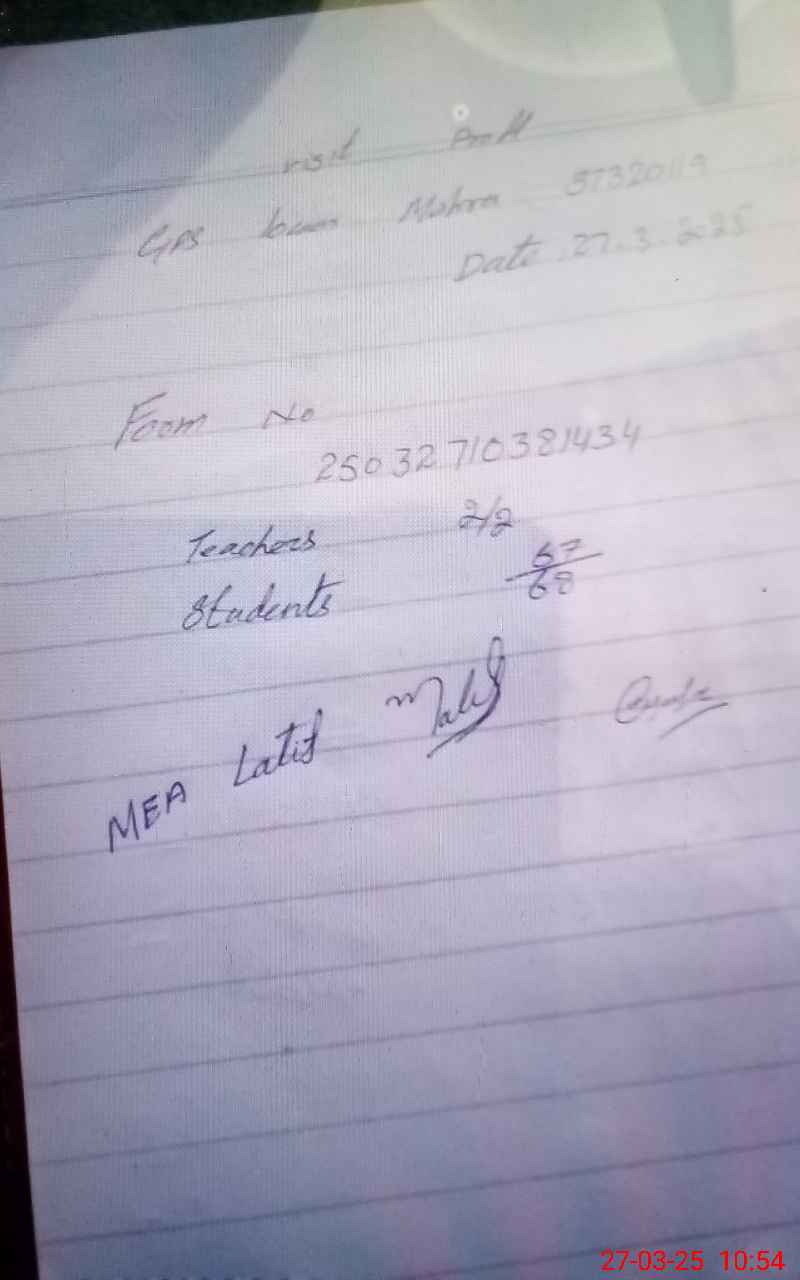 visit Proff
GPS Mohra 37320119
Date 27.3.2025
Foom No
25032710381434
Teachers 2/2
Students 67/68
MEA Latif Malik
27-03-25 10:54